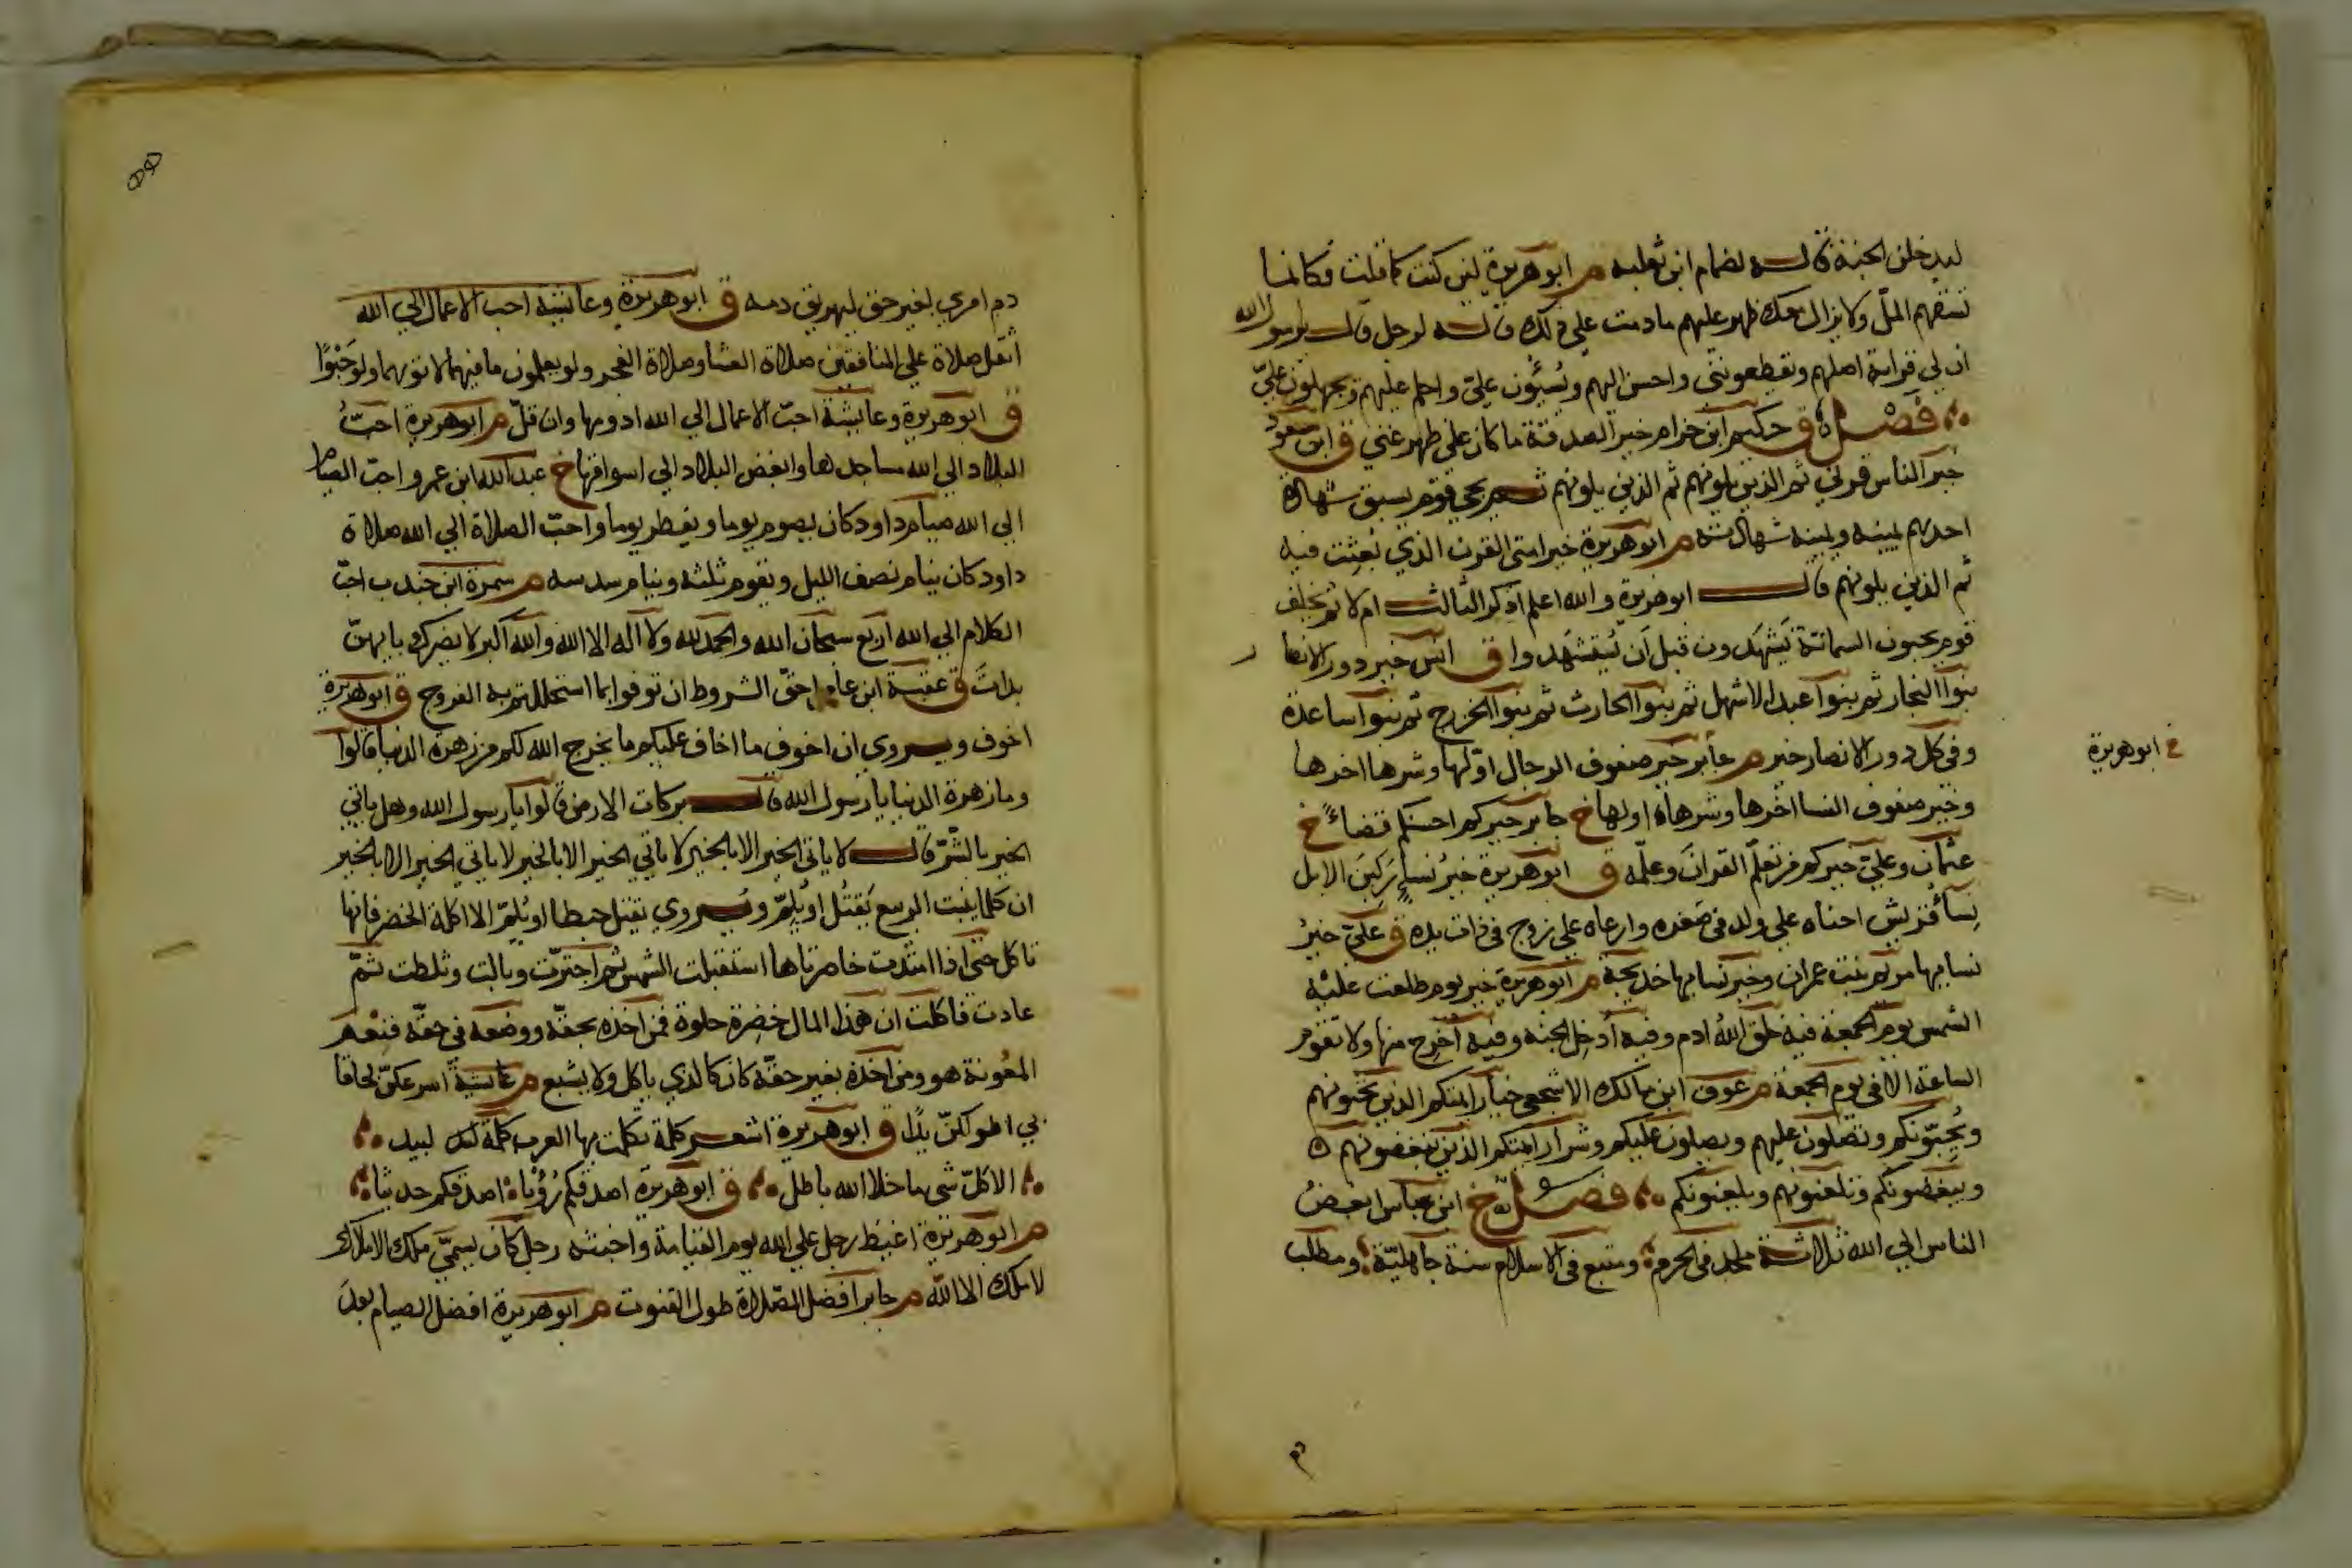 ليدخلن الجنة قاله لضمام ابن ثعلبة م ابو هريرة لئن كنت كما قلت فكانما
تسفهم الملّ ولا يزال معك ظهير عليهم ما دمت علي ذلك قاله لرجل قال يا رسول الله
ان لي قرابة اصلهم ويقطعونني واحسن اليهم ويُسيئون عليّ واحلم عليهم ويجهلون عليّ
فصل ق حكيم ابن حزام خير الصدقة ما كان علي ظهر غني ق ابن مسعود
خير الناس قرني ثم الذين يلونهم ثم الذين يلونهم ثم يجي قوم يسبق شهادة
احدهم يمينه ويمينه شهادته م ابو هريرة خير امتي القرن الذي بُعثِت فيه
ثم الذين يلونهم قال ابو هريرة والله اعلم اذكر الثالث ام لا ثم يخلف
قوم يحبون السمانة يَشهَدون قبل اَن يُستشهَدوا ق انس خير دور الانصار
بنوا النجار ثم بنوا عبد الاشهل ثم بنوا الحارث ثم بنوا الخزرج ثم بنوا ساعدة
وفي كل دور الانصار خير م جابر خير صفوف الرجال اوّلها وشرها اخرها
خ ابو هريرة
وخير صفوف النسا اخرها وشرها اولها خ جابر خيركم احسنكم قضاءً خ
عثمان وعليّ خيركم من تعلّم القرانَ وعلّمه ق ابو هريرة خيرُ نساءٍ رَكِبنَ الابل
نِسَاءُ قريش احناه علي ولد في صغره وارعاه علي زوج في ذات يده ق عليّ خيرُ
نسايها مريم بنت عمران وخير نسايها خديجة م ابو هريرة خير يوم طلعت عليْه
الشمس يوم الجمعة فيه خلق اللهُ ادم وفيه اُدخِل الجنة وفيه اُخرج منها ولا تقوم
الساعة الا في يوم الجمعة م عوف ابن مالك الاشجعي خيار ايمتكم الذين تحبونهم
ويُحبّونكم وتصلون عليهم ويصلون عليكم وشرار ايمتكم الذين تبغضونهم
ويبغضونكم وتلعنونهم ويلعنونكم فصل خ ابن عباس ابغضُ
الناس الي الله ثلاثة ملحد في الحرم ومتبع في الاسلام سنة جاهليّة ومطلب
دم امري بغير حق ليهريق دمه ق ابو هريرة وعائشة احب الاعمال الي الله
اثقل صلاة علي المنافقين صلاة العشا وصلاة الفجر ولو يعلمون ما فيهما لاتوهما ولو حَبْوًا
ق ابو هريرة وعائشة احبّ الاعمال الي الله ادومها وان قلّ م ابو هريرة احبّ
البلاد الي الله مساجدها وابغض البلاد الي اسواقها خ عبد الله ابن عمرو احبّ الصيام
الي الله صيام داود كان يصوم يوما ويفطر يوما واحبّ الصلاة الي الله صلاة
داود كان ينام نصف الليل ويقوم ثلثه وينام سدسه م سمرة ابن جندب احبّ
الكلام الي الله اربع سبحان الله والحمد لله ولا اله الا الله والله اكبر لا يضرك بايهنّ
بدات ق عقبة ابن عامر احقّ الشروط ان توفوا بما استحللتم به الفروج ق ابو هريرة
اخوف ويروي ان اخوف ما اخاف عليكم ما يخرج الله لكم من زهرة الدنيا قالوا
وما زهرة الدنيا يا رسول الله قال بركات الارض قالوا يا رسول الله وهل ياتي
الخير بالشرّ قال لا ياتي الخير الا بالخير لا ياتي الخير الا بالخير لا ياتي الخير الا بالخير
ان كلما ينبت الربيع يَقتُل او يُلمّ ويُروي يقتل حبطا او يُلمّ الا اكلة الخضر فانها
تاكل حتى اذا امتدت خاصرتاها استقبلت الشمس ثم اجترّت وبالت وثلطت ثمّ
عادت فاكلت ان هذا المال خضِرة حلوة فمن اخذه بحقّه ووضعه في حقّه فنِعْم
المعُونة هو ومن اخذه بغير حقّه كان كالذي ياكل ولا يشبع م عائشة اسرعكنّ لحاقا
بي اطولكنّ يدًا ق ابو هريرة اشعر كلمة تكلمت بها العرب كلمة لبيد
الا كلّ شي ما خلا الله باطل ق ابو هريرة اصدقكم رُؤيا اصدقكم حديثا
م ابو هريرة اغيظ رجل علي الله يوم القيامة واخبثه رجل كان يسميّ ملك الاملاك
لا ملك الا الله م جابر افضل الصّلاة طول القنوت م ابو هريرة افضل الصيام بعدَ